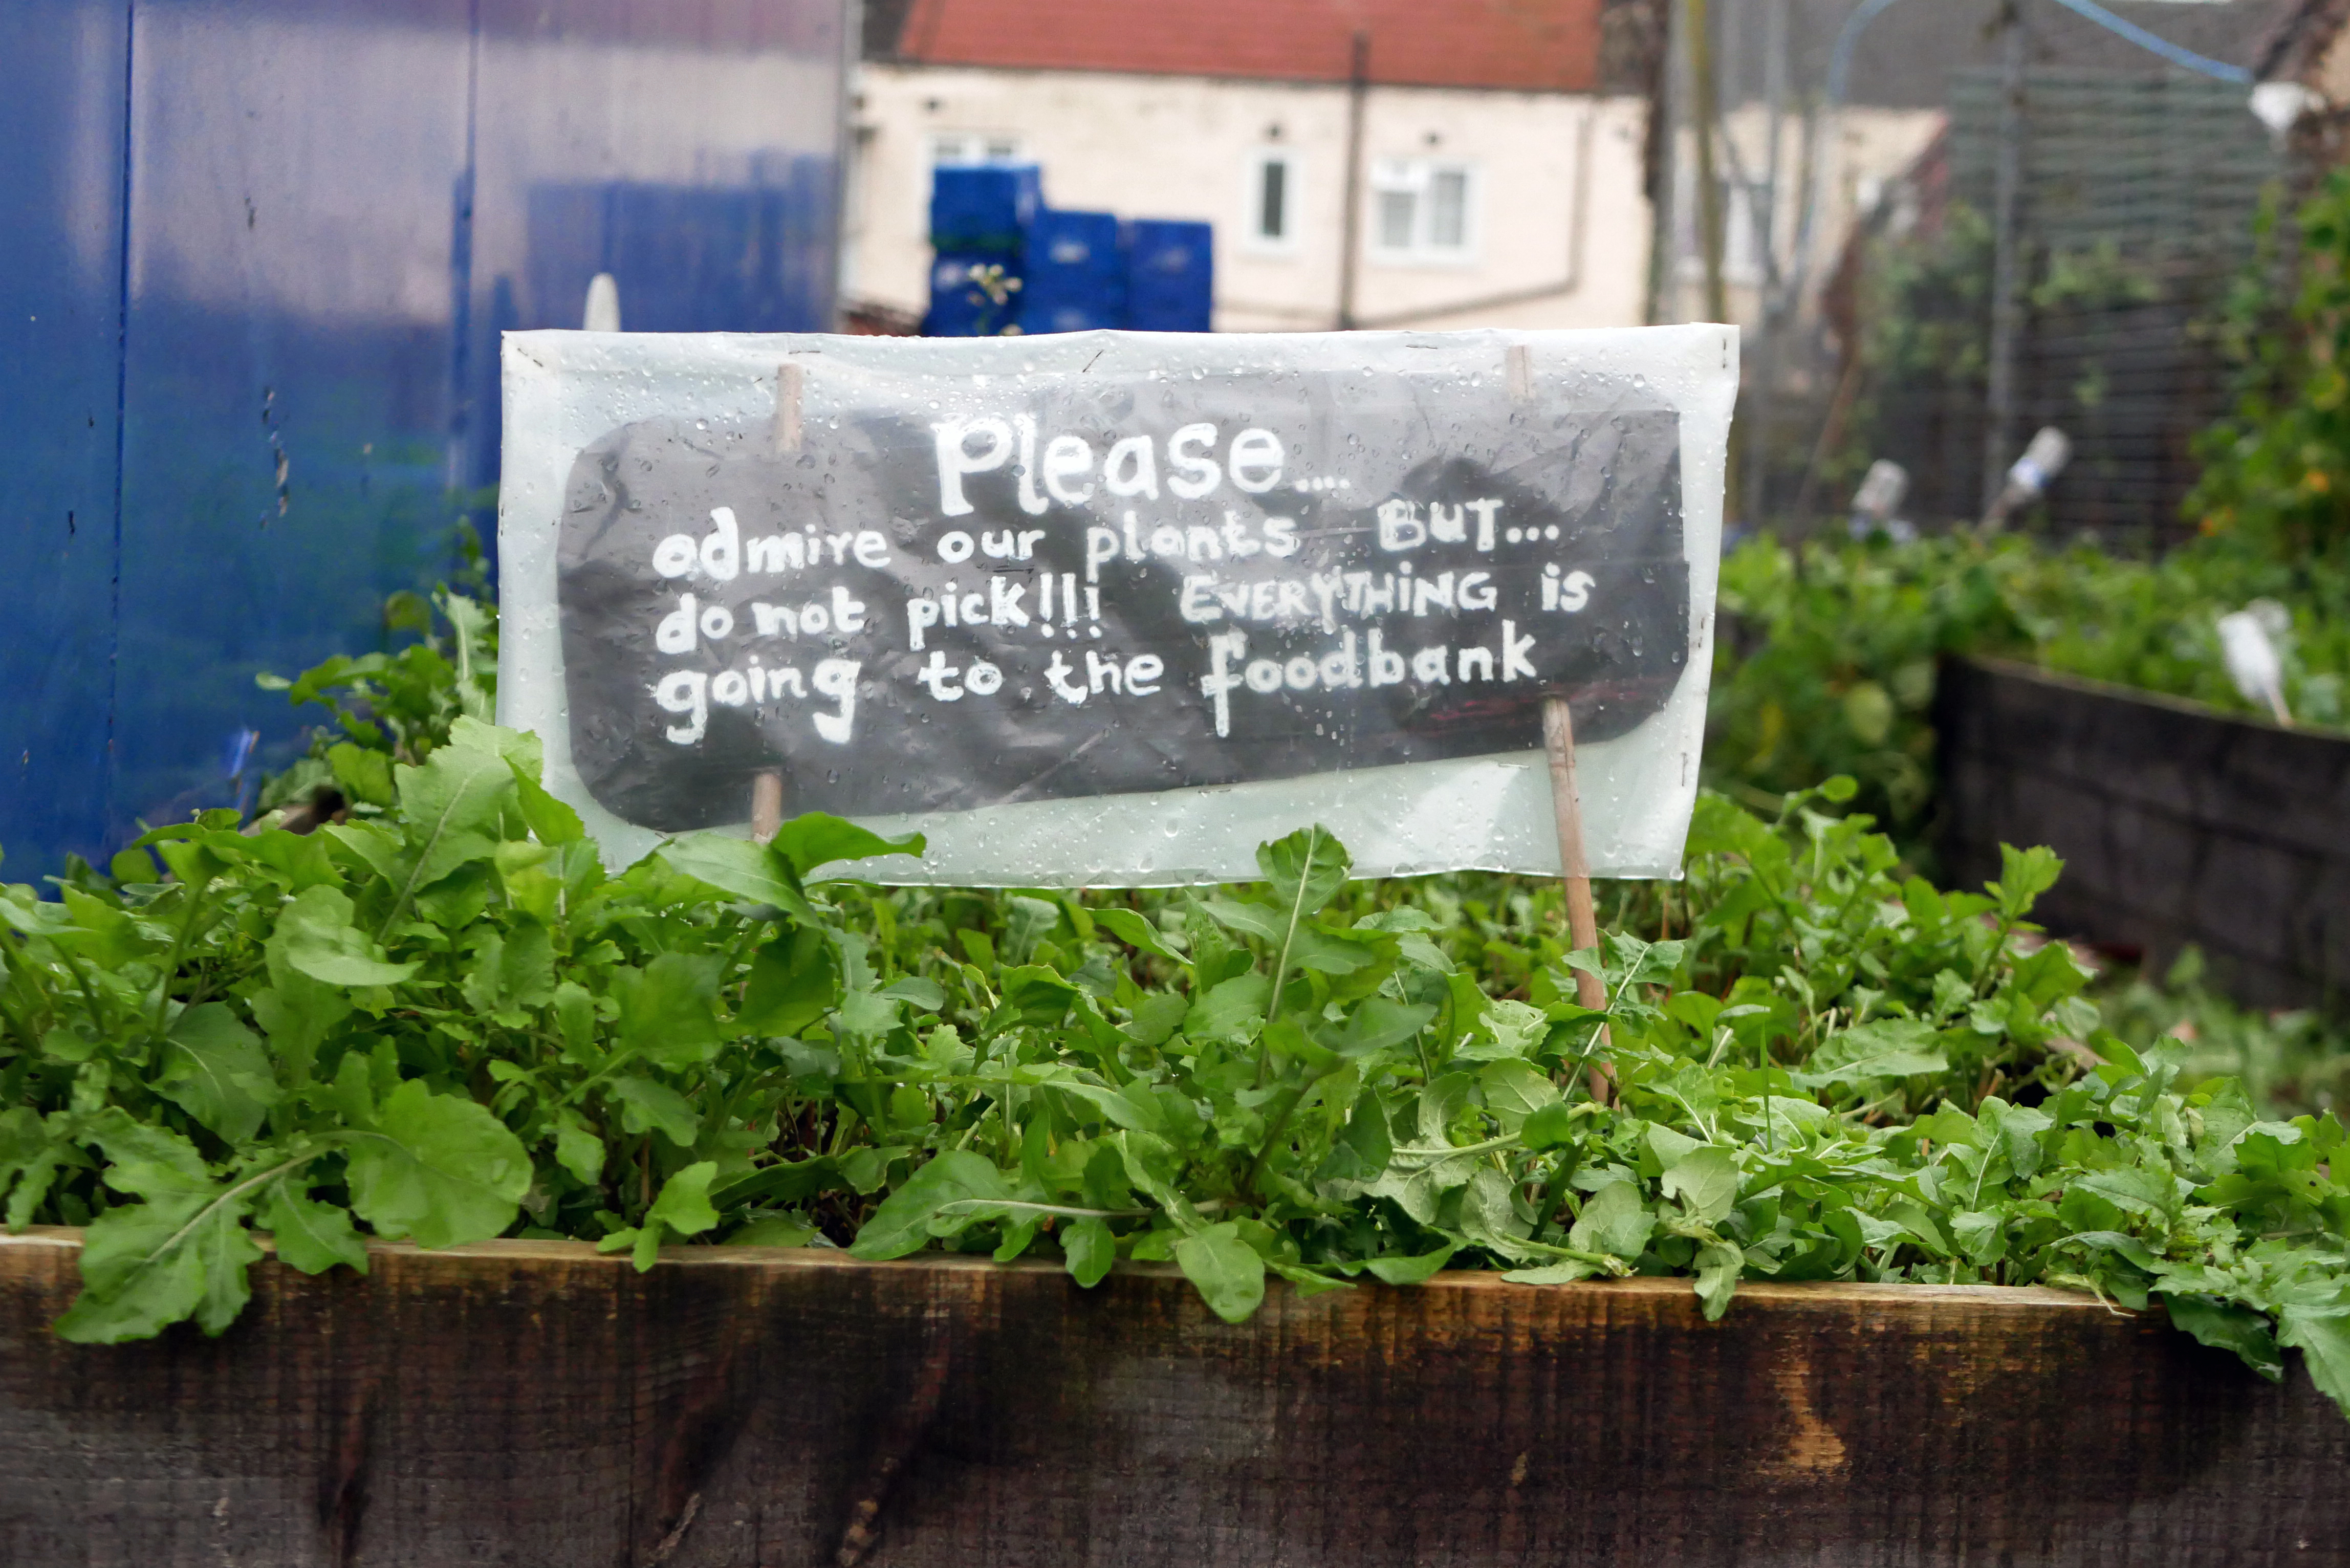 Please....
admire our plants BUT...
do not pick!!! EVERYTHING is
going to the foodbank